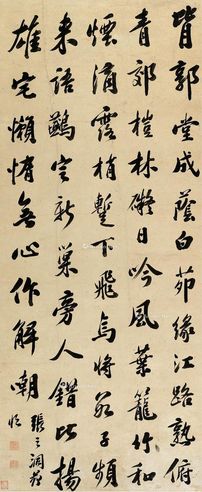 背郭堂成蔭白茆緣江路熟俯
青郊榿林礙日吟風葉籠竹和
煙滴露梢蹔下飛烏將數子頻
來語鷰定新巢旁人錯比揚
雄宅懶惰無心作解嘲
張之洞